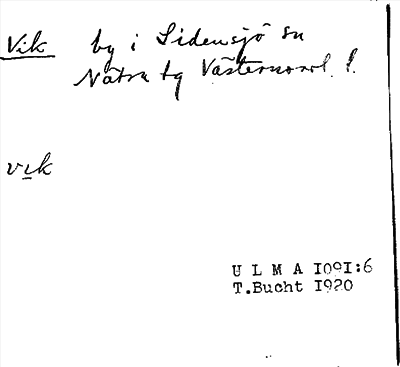 Vik by i Sidensjö sn
Nätra tg Västernorrl. l.
vik
U L M A 1091:6
T.Bucht 1920